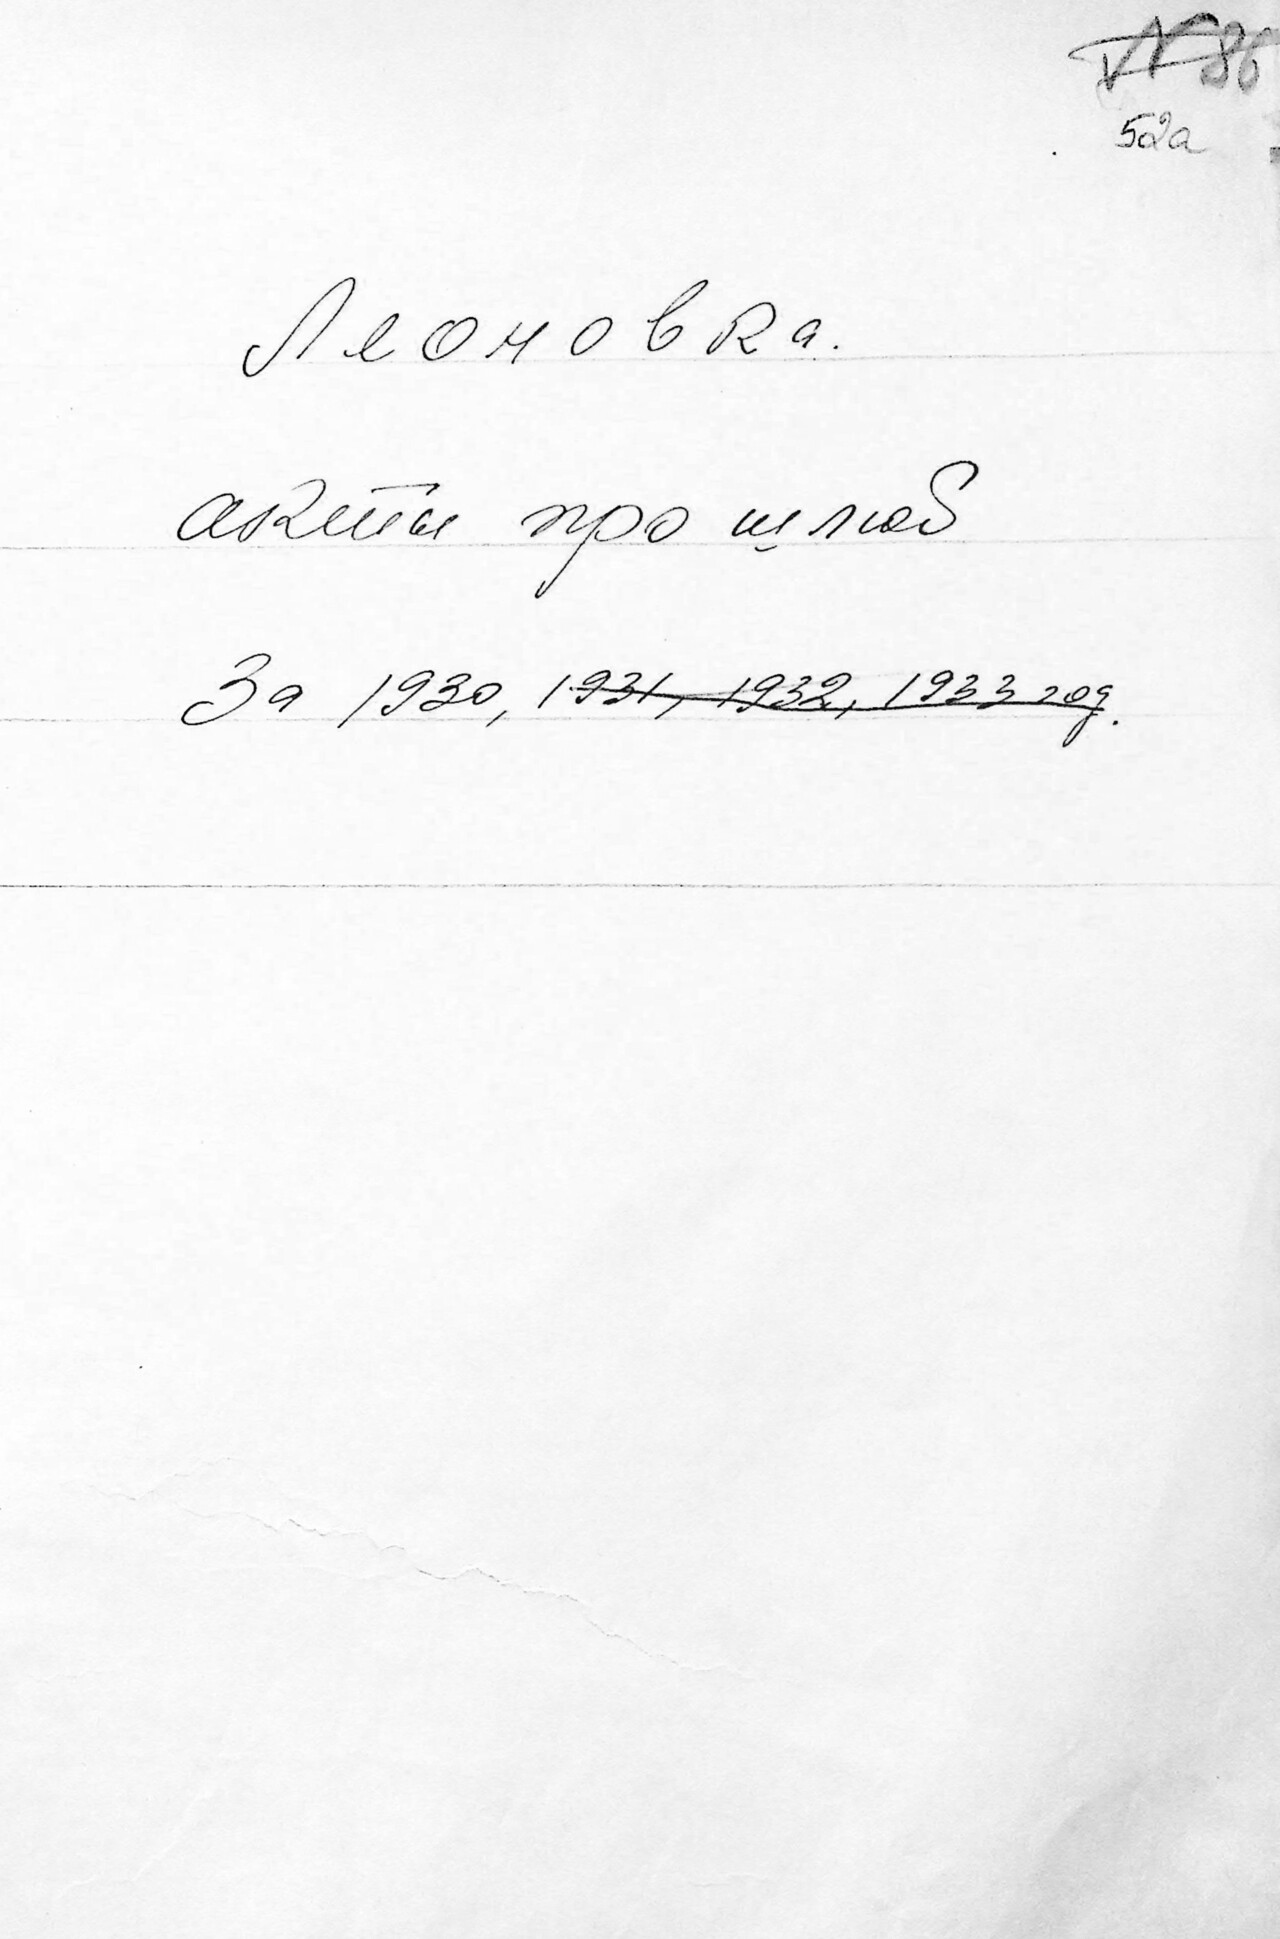 № 86
52а
Леоновка.
акты про шлюб
За 1930, 1931, 1932, 1933 год.